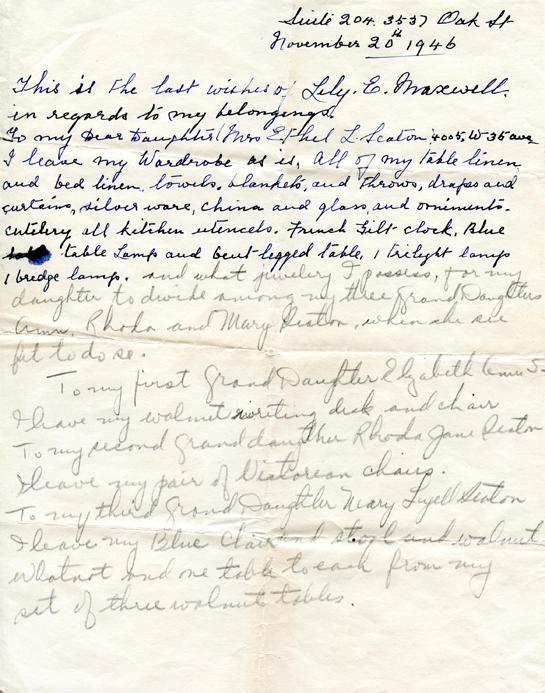 Suite 204. 3537 Oak St
November 20th 1946
This is the last wishes of Lily. E. Maxwell.
in regards to my belongings.
To my Dear Daughter (Mrs Ethel L Seaton 4005. W. 35 ave
I leave my Wardrobe as is, All of my table linen
and bed linen, towels. blankets, and throws, drapes and
curtains, silver ware, china and glass and orniments.
cutelery all kitchen utencels. French Gilt clock, Blue
table Lamp and bent-legged table, 1 trilight lamp
1 bredge lamp. and what jewelery I possess, for my
daughter to divide among my three Grand Daughters
Ann, Rhoda and Mary Seaton, when she see
fit to do so.
To my first Grand Daughter Elizabeth Ann S-
I leave my walnut writing desk and chair
To my second Grand daughter Rhoda Jane Seaton
I leave my pair of Victorean chairs.
To my third Grand Daughter Mary Lyell Seaton
I leave my Blue Chair and stool and walnut
whatnot and one table to each from my
set of three walnut tables.